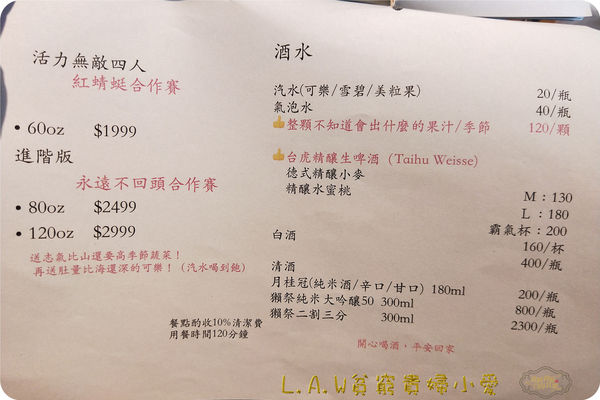 活力無敵四人
紅蜻蜓合作賽
• 60oz $1999
進階版
永遠不回頭合作賽
• 80oz $2499
• 120oz $2999
送志氣比山還要高季節蔬菜！
再送肚量比海還深的可樂！（汽水喝到飽）
餐點酌收10%清潔費
用餐時間120分鐘
酒水
汽水(可樂/雪碧/美粒果) 20/瓶
氣泡水 40/瓶
整顆不知道會出什麼的果汁/季節 120/顆
台虎精釀生啤酒 (Taihu Weisse)
德式精釀小麥
精釀水蜜桃
M：130
L：180
霸氣杯：200
白酒 160/杯
400/瓶
清酒
月桂冠(純米酒/辛口/甘口) 180ml 200/瓶
獺祭純米大吟釀50 300ml 800/瓶
獺祭二割三分 300ml 2300/瓶
開心喝酒，平安回家
L.A.W貧窮貴婦小愛